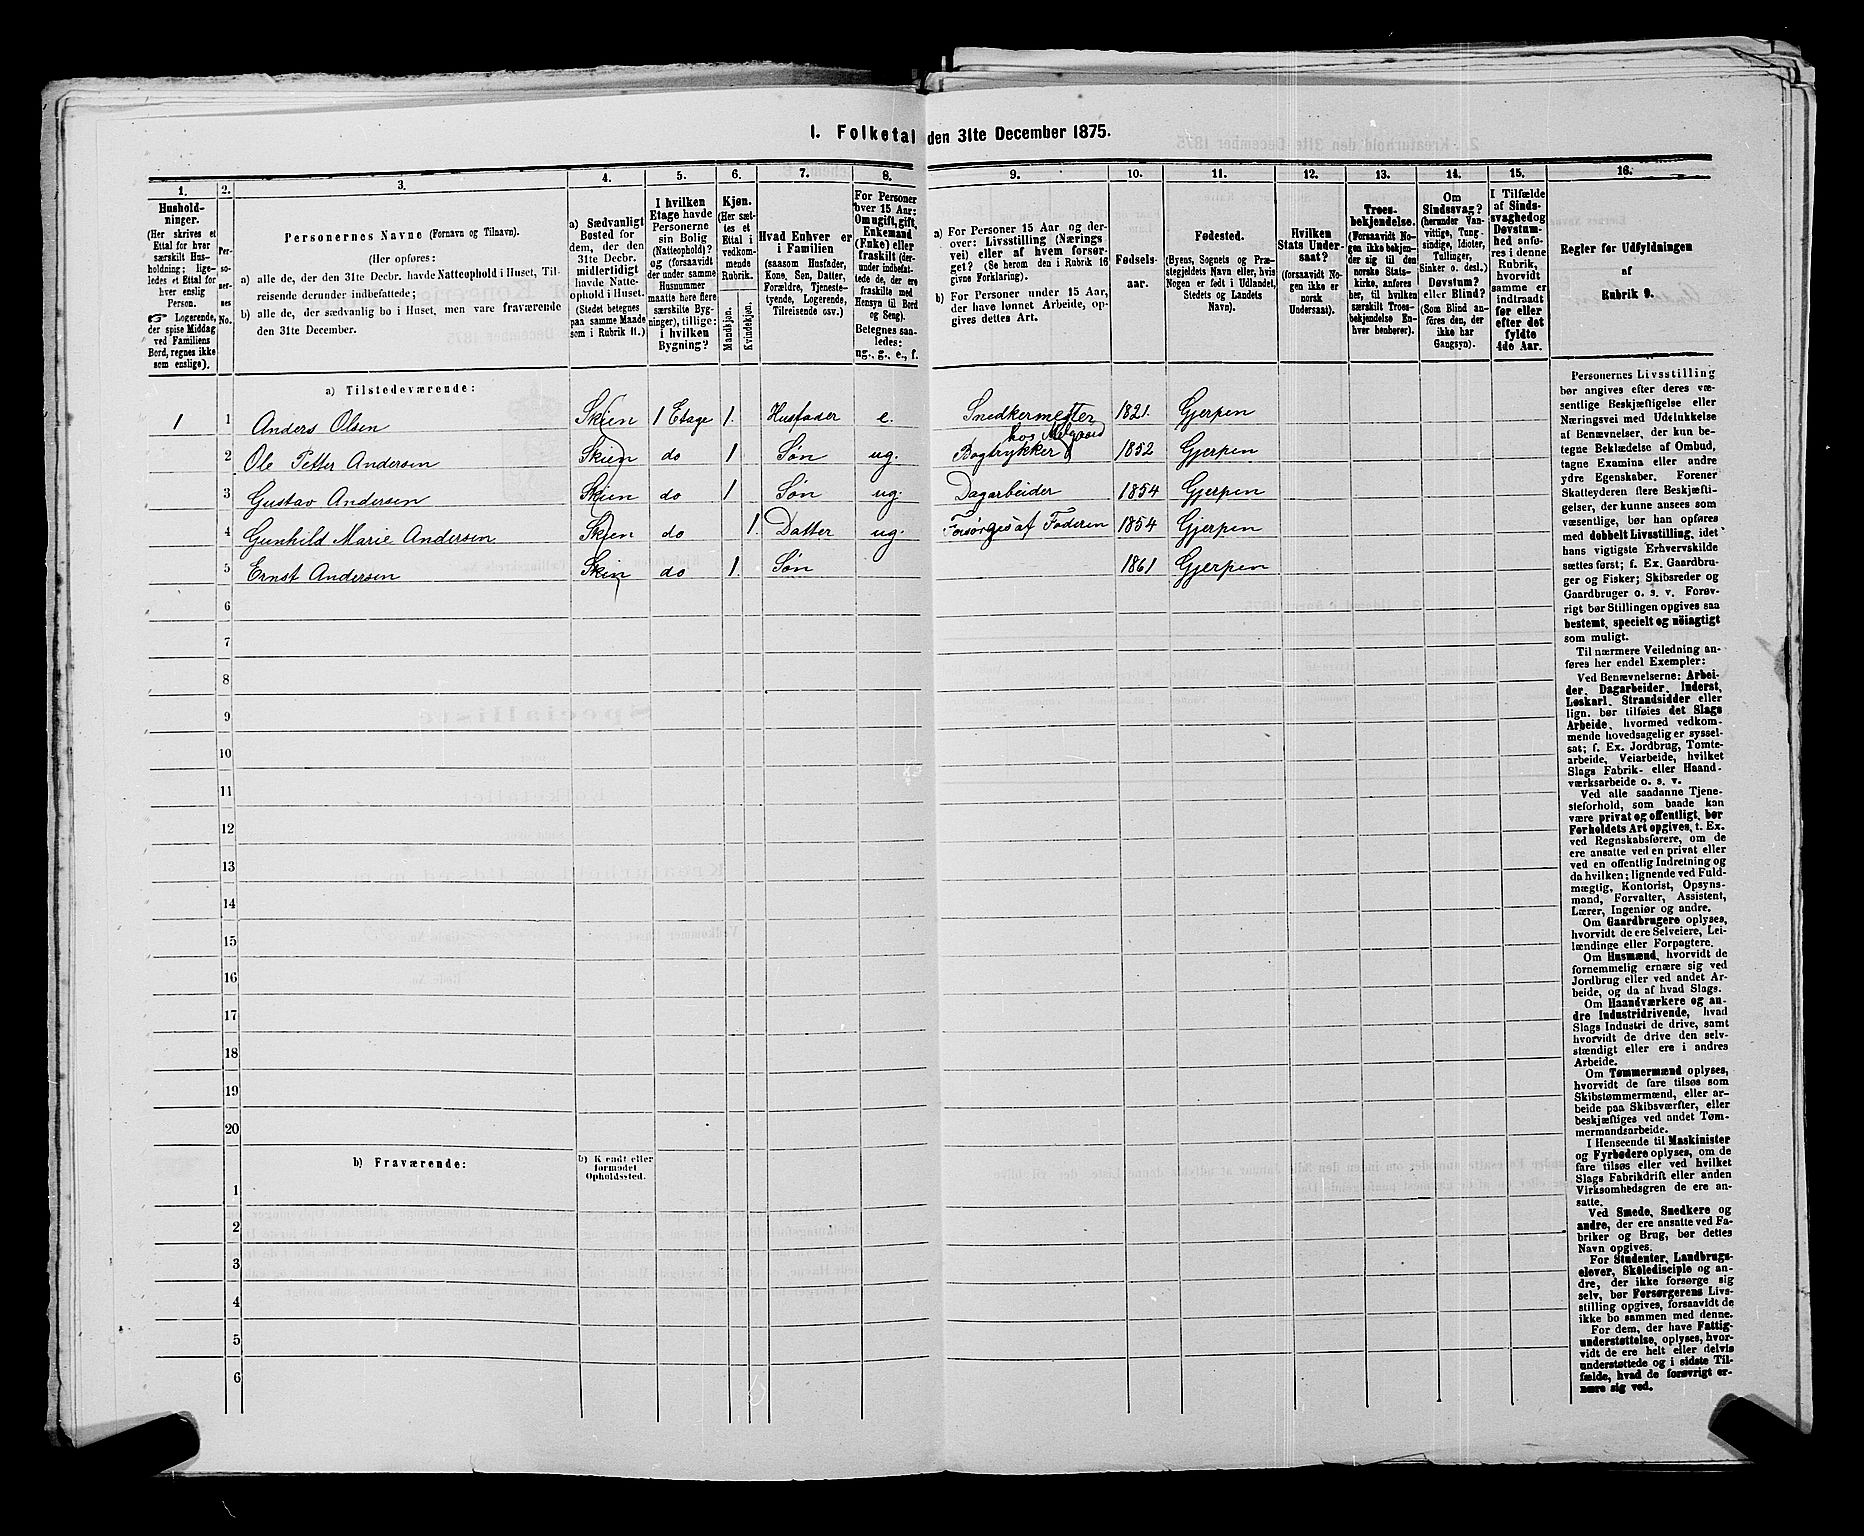 1. Folketal den 31te December 1875.
1.
Husholdninger.
(Her skrives et
Ettal for hver
særskilt Husholdning;
ligeledes et Ettal for
hver enslig
Person.
Logerende,
der spise Middag
ved Familiens
Bord, regnes ikke
som enslige).
2.
Personernes
No.
3.
Personernes Navne (Fornavn og Tilnavn).
(Her opføres:
a) alle de, der den 31te Decbr. havde Natteophold i Huset, Tilreisende derunder indbefattede;
b) alle de, der sædvanlig bo i Huset, men vare fraværende
den 31te December.
4.
a) Sædvanligt
Bosted for
dem, der den
31te Decbr.
midlertidigt
havde Natteophold i Huset.
(Stedet betegnes
paa samme Maade
som i Rubrik 11.)
5.
I hvilken
Etage havde
Personerne
sin Bolig
(Natteophold)?
og (forsaavidt
der under samme
Husnummer
maatte høre flere
særskilte Bygninger), tillige:
i hvilken
Bygning?
6.
Kjøn.
(Her sættes et
Ettal i
vedkommende
Rubrik.
Mandkjøn.
Kvindekjøn.
7.
Hvad Enhver er
i Familien
(saasom Husfader,
Kone, Søn, Datter,
Forældre, Tjenestetyende, Logerende,
Tilreisende osv.)
8.
For Personer
over 15 Aar:
Om ugift, gift,
Enkemand
(Enke) eller
fraskilt
Betegnes saaledes:
ug., g., e., f.
9.
a) For Personer 15 Aar og derover: Livsstilling (Nærings
vei) eller af hvem forsørget? (Se herom den i Rubrik 16
givne Forklaring).
b) For Personer under 15 Aar,
der have lønnet Arbeide, opgives dettes Art.
10.
Fødselsaar.
11.
Fødested.
(Byens, Sognets og Præstegjeldets Navn eller, hvis
Nogen er født i Udlandet,
Stedets og Landets
Navn).
12.
Hvilken
Stats Undersaat?
(forsaavidt Nogen ikke er
norsk
Undersaat).
13.
Troesbekjendelse.
(Forsaavidt Nogen ikke bekjender sig til den
norske Statskirke, anføres
her, til hvilken
særskilt Troesbekjendelse Enhver henhører).
14.
Om
Sindssvag?
(herunder Vanvittige, Tungsindige, Idioter,
Tullinger,
Sinker o. desl.)
Døvstum?
eller Blind?
(Som Blind anføres den, der
ikke har
Gangsyn).
15.
I Tilfælde
af Sindssvaghed og
Døvstumhed anføres i denne
Rubrik,
hvorvidt
samme er
indtraadt
før eller
efter det
fyldte
4de Aar.
16.
Regler for Udfyldningen
af
Rubrik 9.
a) Tilstedeværende:
1 1 Anders Olsen Skien 1 Etage 1. Husfader e. Snedkermester 1821. Gjerpen
hos Melgaard
2 Ole Petter Andersen Skien do 1 Søn ug. Bogtrykker 1852 Gjerpen
3 Gustav Andersen Skien do 1 Søn ug. Dagarbeider 1854 Gjerpen
4 Gunhild Marie Andersen Skien do 1. Datter ug. Forsørges af Faderen 1854 Gjerpen
5 Ernst Andersen Skien do 1. Søn 1861 Gjerpen
6
7
8
9
10
11
12
13
14
15
16
17
18
19
20
b) Fraværende:
b) Kjendt eller
formodet
Opholdssted.
1
2
3
4
5
6
Personernes Livsstilling
bør angives efter deres væsentlige Beskjæftigelse eller
Næringsvei med Udelukkelse
af Benævnelser, der kun betegne Beklædelse af Ombud,
tagne Examina eller andre
ydre Egenskaber. Forener
Skatteyderen flere Beskjæftigelser, der kunne ansees som
væsentlige, bør han opføres
med dobbelt Livsstilling, idet
hans vigtigste Erhvervskilde
sættes først; f. Ex. Gaardbruger og Fisker; Skibsreder og
Gaardbruger o. s. v. Forøvrigt bør Stillingen opgives saa
bestemt, specielt og nöiagtigt
som muligt.
Til nærmere Veiledning anføres her endel Exempler:
Ved Benævnelserne: Arbeider, Dagarbeider, Inderst,
Løskarl, Strandsidder eller
lign. bør tilføies det Slags
Arbeide, hvormed vedkommende hovedsagelig er sysselsat; f. Ex. Jordbrug, Tomtearbeide, Veiarbeide, hvilket
Slags Fabrik- eller Haandværksarbeide o. s. v.
Ved alle saadanne Tjenesteforhold, som baade kan
være privat og offentligt, bør
Forholdets Art opgives, t. Ex.
ved Regnskabsførere, om de
ere ansatte ved en privat eller
ved en offentlig Indretning og
da hvilken; lignende ved Fuldmægtig, Kontorist, Opsynsmand, Forvalter, Assistent,
Lærer, Ingeniør og andre.
Om Gaardbrugere oplyses,
hvorvidt de ere Selveiere, Leilændinge eller Forpagtere.
Om Husmænd, hvorvidt de
fornemmelig ernære sig ved
Jordbrug eller ved andet Arbeide, og da af hvad Slags.
Om Haandværkere og andre Industridrivende, hvad
Slags Industri de drive, samt
hvorvidt de drive den selvstændigt eller ere i andres
Arbeide.
Om Tømmermænd oplyses,
hvorvidt de fare tilsøs som
Skibstømmermænd, eller arbeide paa Skibsværfter, eller
beskjæftiges ved andet Tømmermandsarbeide.
I Henseende til Maskinister
og Fyrbødere oplyses, om de
fare tilsøs eller ved hvilket
Slags Fabrikdrift eller anden
Virksomhedsgren de ere ansatte.
Ved Smede, Snedkere og
andre, der ere ansatte ved Fabriker og Brug, bør dettes
Navn opgives.
For Studenter, Landbrugselever, Skoledisciple og andre, der ikke forsørge sig
selv, bør Forsørgerens Livsstilling opgives, forsaavidt de
ikke bo sammen med denne.
For dem, der have Fattigunderstøttelse, oplyses, hvorvidt de ere helt eller delvis
understøttede og i sidste Tilfælde, hvad de forøvrigt ernære sig ved.